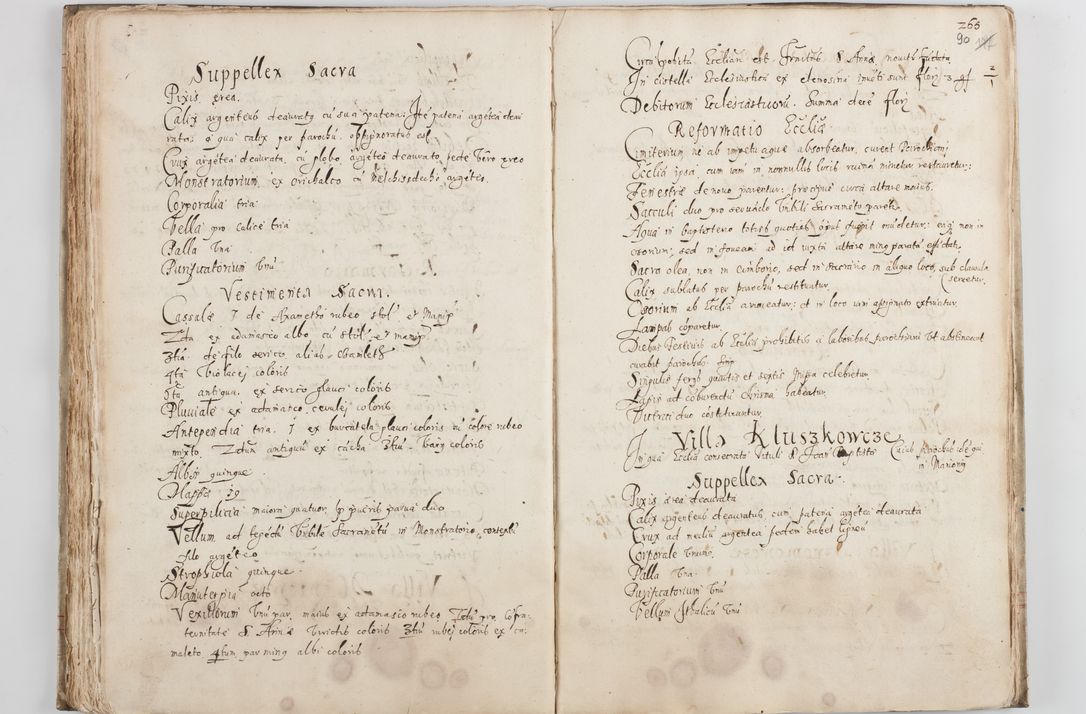 Suppellex Sacra
Pixis erea.
Calix argenteus deauratus cu sua patena: Ite patena argetea deau
rata: a qua calix per parochu obpignoratus est.
Crux argetea deaurata, cu globo argeteo deaurato, pede vero ereo
Monstratorium ex orichalco cu Melchisedecho argeteo.
Corporalia tria
Vella pro calice tria
Palla una
Purificatorium unu
Vestimenta Sacra.
Cassula I de Axametho rubeo stol et Manip
2da ex adamascio albo cu stol et manip
3tia de filo serico alias Chamleth
4ta violacej coloris
5ta antiqua ex serico glauci coloris
Pluviale ex adamasco cerulej coloris
Antependia tria. I ex burcatela glauci coloris cu colore rubeo
mixto 2dum antiquu ex 3tiu varij coloris
Albae quinque.
Mappae 19
Superpilicia maiora quatuor, pueris parva duo
Vellum ad tegedu Venbile Sacrametu in Monstratorio, contextu
filo argeteo
Strophiola quinque
Manutergia octo
Vexillorum unu par maius ex adamasco rubeo 2du pro cofra
ternitate S. Annae viridis coloris 3tiu rubej coloris ex ca
maleto 4tum par minq albi coloris
265
90
Circa Ecclian est S. Annae, noviter
In cistella Ecclesiastica ex elemosina inveti sunt florj 3 gr 2/1
Debitorum Ecclesiasticoru. Summa dece florj
Reformatio Eccliae
Cimiterium ne ab impetu aquae absorbeatur, curent Parochianj
Ecclia ipsa, cum iam in nonnullis locis ruina minetur restauretur:
Fenestrae de novo parentur: precipue circa altare maius.
Sacculi duo pro servado Venbili Sacrameto parentur
Aqua in baptisterio toties quoties opus fuerit mudetur: eaq non in
osorium, sed in foveam ad id iuxta altare minq parata effudat.
Sacra olea, non in cimborio, sed in sacrario in aliquo loco, sub clausula
serventur.
Calix sublatus per parochu restituatur.
Osorium ab Ecclia amoveatur: et in loco iam assignato extruatur.
Lampas coparetur
Diebus Festivis ab Ecclia prohibitis a laboribus parochiani ut abstineant
curabit parochus
Singulis ferijs quartis et sextis Missa celebretur
Lapis ad coburendu Chrisma habeatur
Vitrici duo costituantur
In Villa Kluszkowcze
In qua Ecclia consecrata tituli S. Joan Baptistae Cuius parochus ide qui
in Maniowy
Suppellex Sacra.
Pixis erea deaurata
Calix argenteus deauratus cum patena argetea deaurata
Crux ad mediu argentea pedem habet ligneu
Corporale unum
Palla una
Purificatorium unu
Vellum Italicu unu